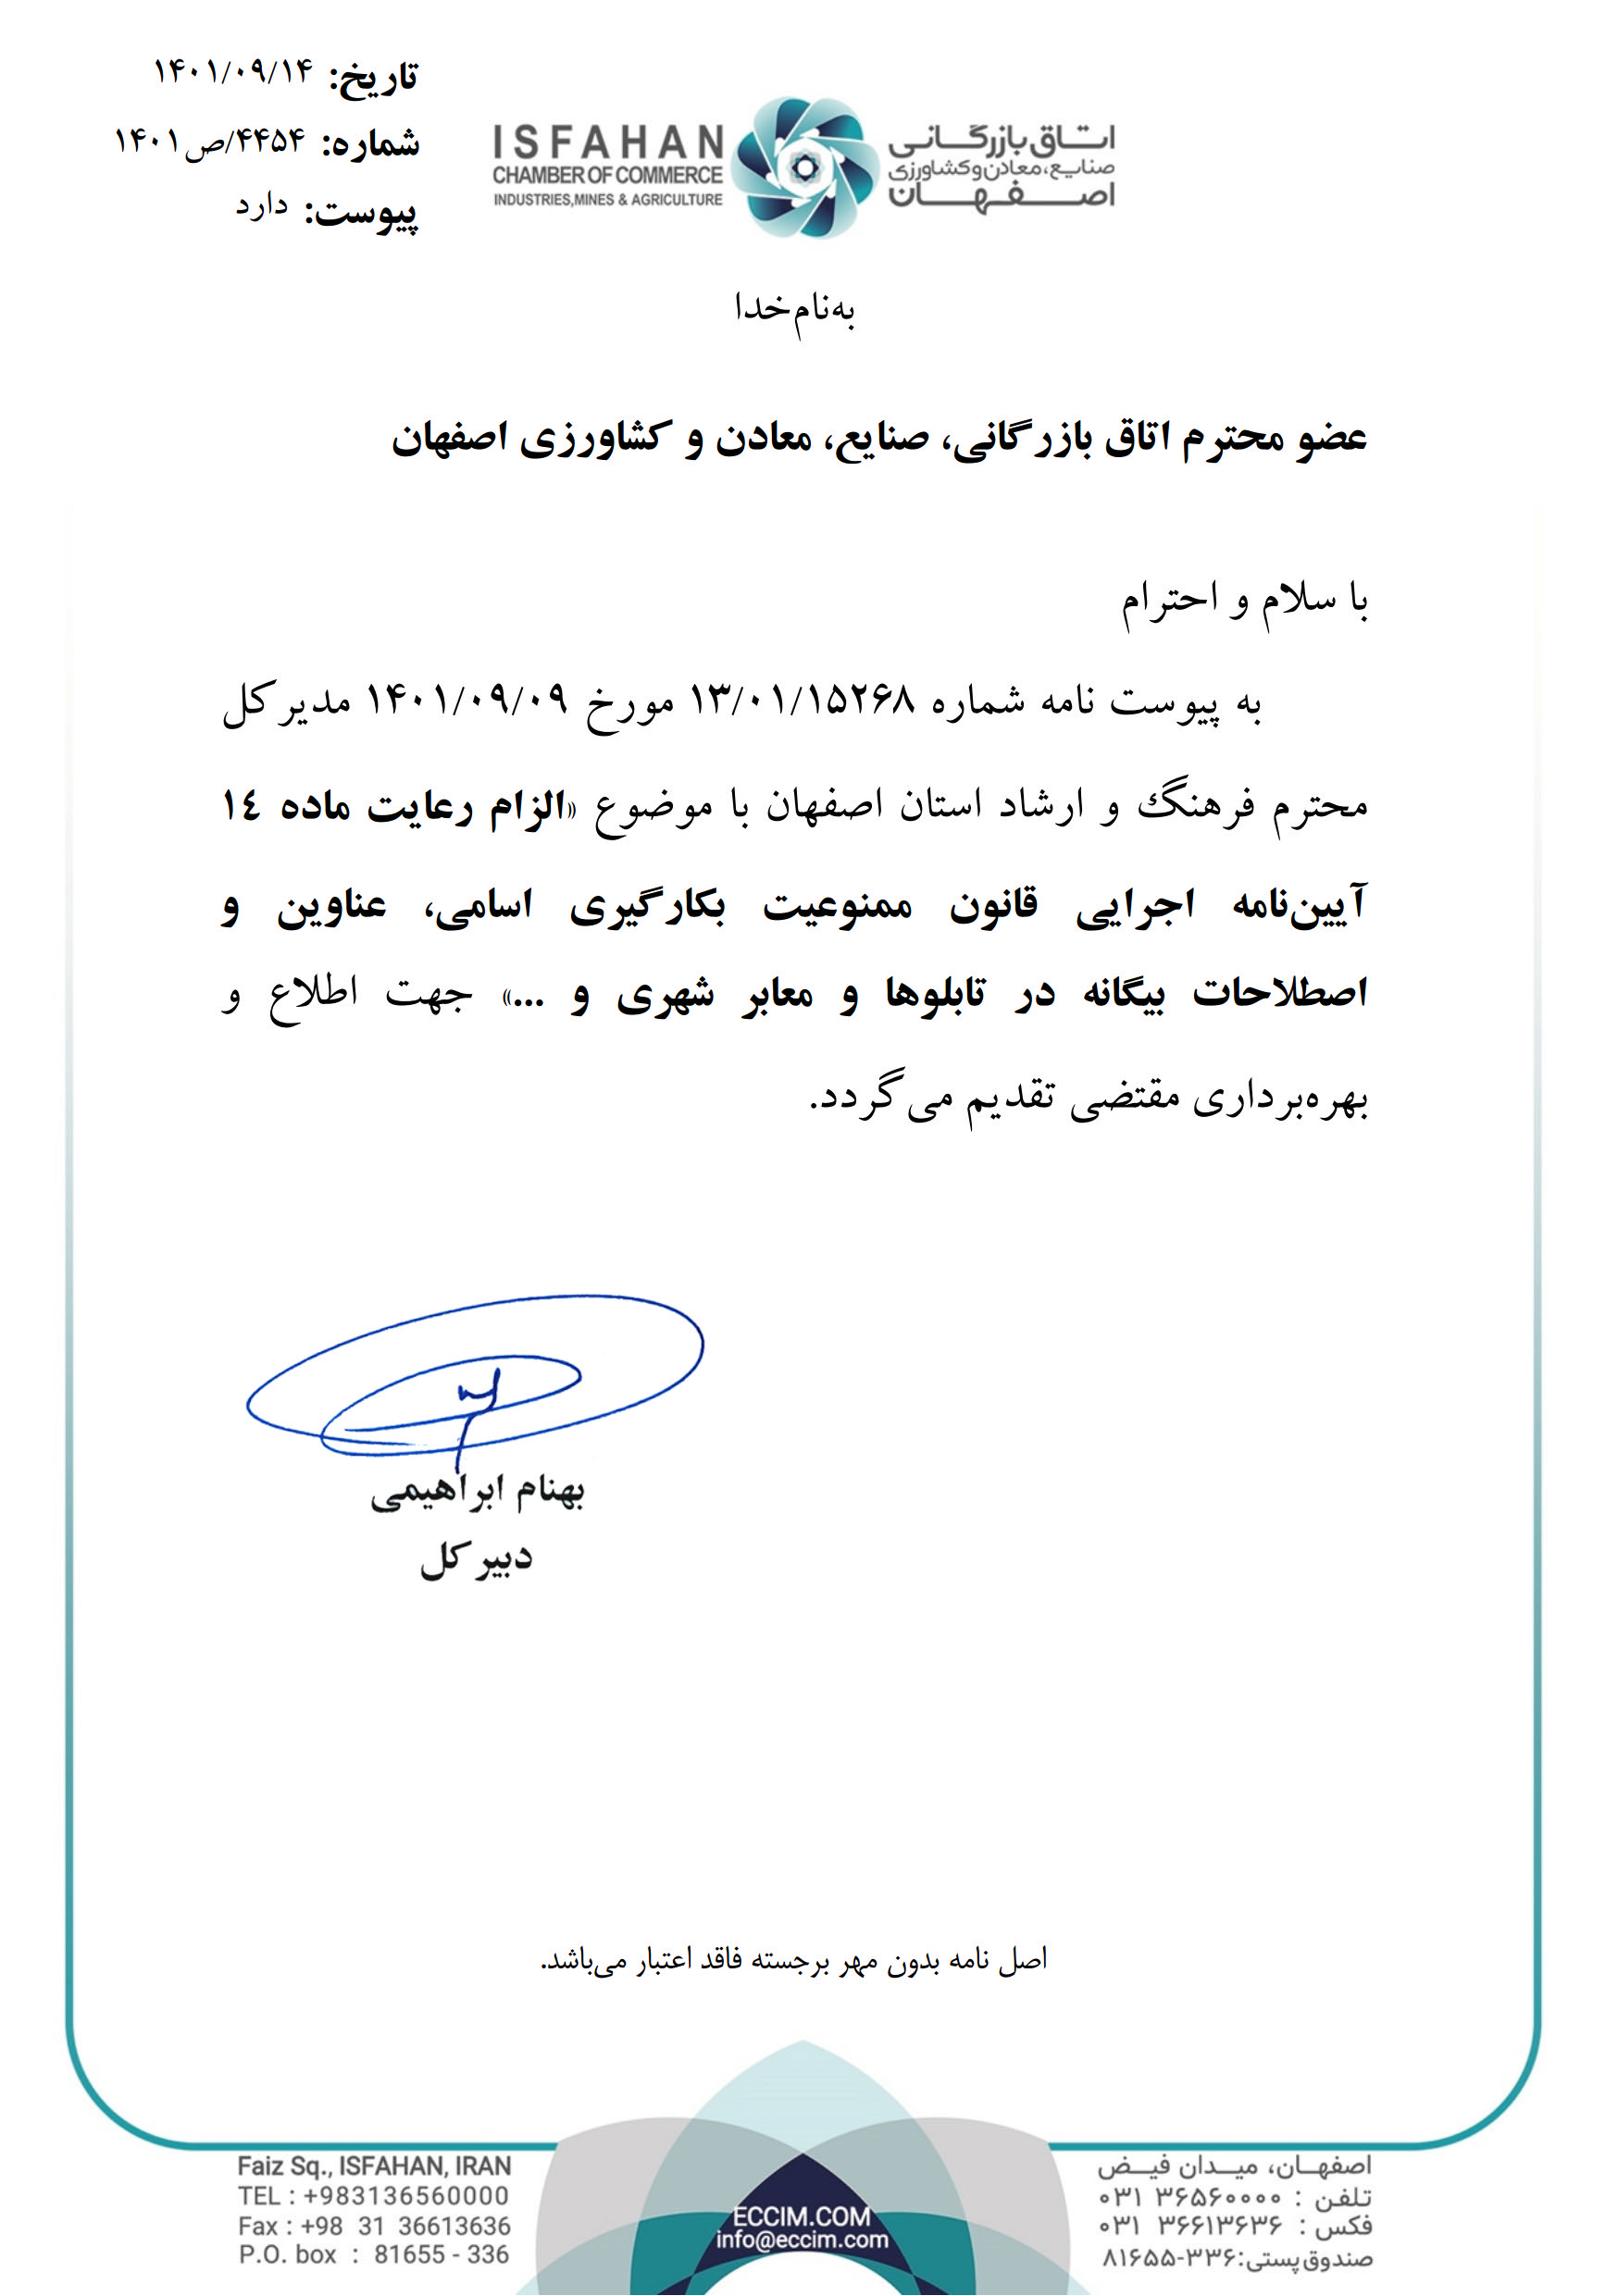 تاریخ: ۱۴۰۱/۰۹/۱۴
شماره: ۴۴۵۴/ص۱۴۰۱
پیوست: دارد
ISFAHAN
CHAMBER OF COMMERCE
INDUSTRIES,MINES & AGRICULTURE
اتاق بازرگانی
صنایع، معادن و کشاورزی
اصفهان
به‌نام‌خدا
عضو محترم اتاق بازرگانی، صنایع، معادن و کشاورزی اصفهان
با سلام و احترام
به پیوست نامه شماره ۱۳/۰۱/۱۵۲۶۸ مورخ ۱۴۰۱/۰۹/۰۹ مدیرکل
محترم فرهنگ و ارشاد استان اصفهان با موضوع «الزام رعایت ماده ١٤
آیین‌نامه اجرایی قانون ممنوعیت بکارگیری اسامی، عناوین و
اصطلاحات بیگانه در تابلوها و معابر شهری و ...» جهت اطلاع و
بهره‌برداری مقتضی تقدیم می‌گردد.
بهنام ابراهیمی
دبیرکل
اصل نامه بدون مهر برجسته فاقد اعتبار می‌باشد.
Faiz Sq., ISFAHAN, IRAN
TEL : +983136560000
Fax : +98 31 36613636
P.O. box : 81655 - 336
ECCIM.COM
info@eccim.com
اصفهـان، میـدان فیـض
تلفن : ۳۶۵۶۰۰۰۰ ۰۳۱
فکس : ۳۶۶۱۳۶۳۶ ۰۳۱
صندوق پستی: ۳۳۶-۸۱۶۵۵